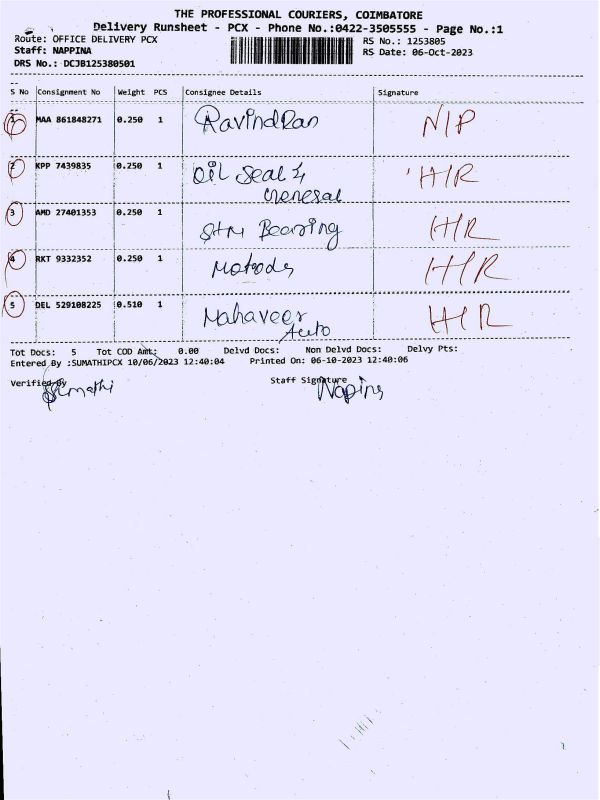 THE PROFESSIONAL COURIERS, COIMBATORE
Delivery Runsheet - PCX - Phone No.:0422-3505555 - Page No.:1
Route: OFFICE DELIVERY PCX RS No.: 1253805
Staff: NAPPINA RS Date: 06-Oct-2023
DRS No.: DCJB125380501
S No Consignment No Weight PCS Consignee Details Signature
1 MAA 861848271 0.250 1 Ravindran N/P
2 KPP 7439835 0.250 1 Oil Seal & H/R
General
3 AMD 27401353 0.250 1 Bearing H/R
4 RKT 9332352 0.250 1 H/R
5 DEL 529108225 0.510 1 Mahaveer H/R
Auto
Tot Docs: 5 Tot COD Amt: 0.00 Delvd Docs: Non Delvd Docs: Delvy Pts:
Entered By :SUMATHIPCX 10/06/2023 12:40:04 Printed On: 06-10-2023 12:40:06
Verified By Staff Signature
Sumathi Nappina